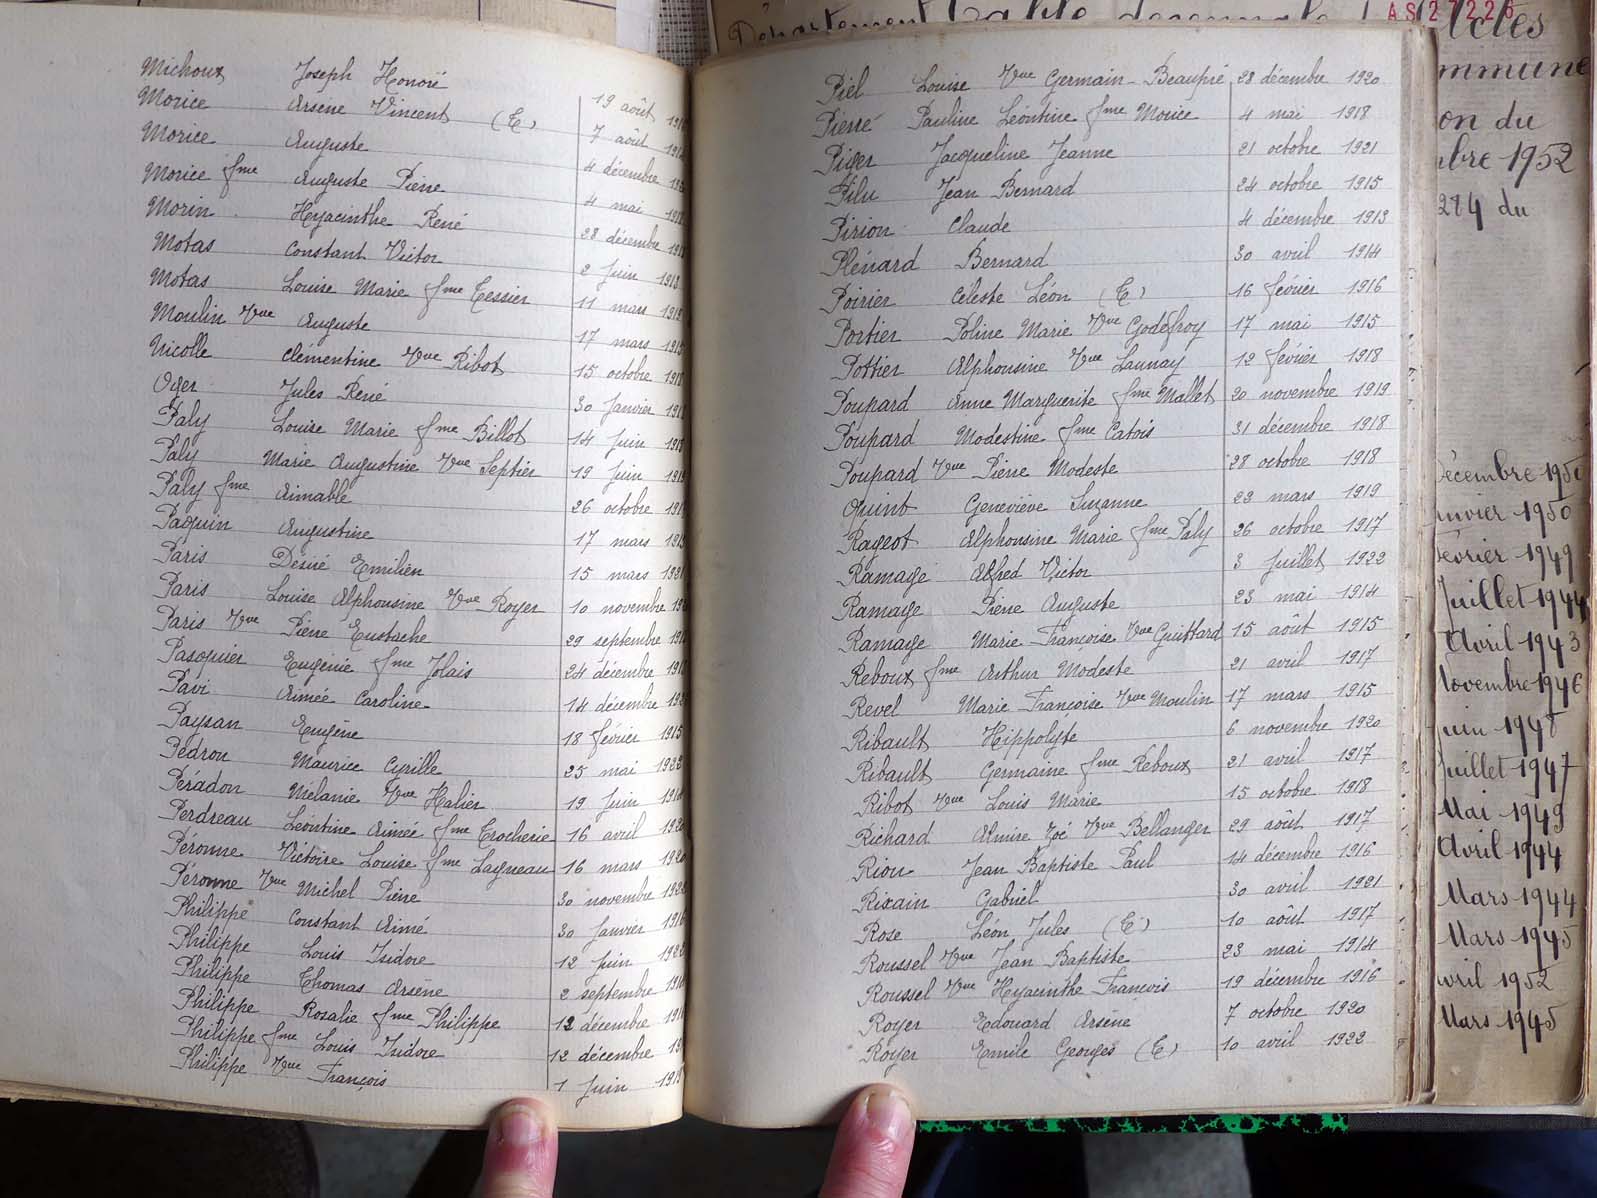 Michoux Joseph Honoré 19 août
Morice Arsène Vincent (E) 7 août
Morice Auguste 4 décembre
Morice fme Auguste Pierre 4 mai
Morin Hyacinthe René 28 décembre
Motas Constant Victor 2 Juin 1918
Motas Louise Marie fme Tessier 11 mars
Moulin Vve Auguste 17 mars 1915
Nicolle Clémentine Vve Ribot 15 octobre 1918
Oger Jules René 30 Janvier
Paly Louise Marie fme Billot 14 Juin
Paly Marie Augustine Vve Septier 19 Juin
Paly fme Aimable 26 octobre
Paquin Augustine 17 mars
Paris Désiré Emilien 15 mars 1921
Paris Louise Alphonsine Vve Royer 10 novembre
Paris Vve Pierre Eustache 29 septembre
Pasquier Eugénie fme Jolais 24 décembre
Pavi Aimée Caroline 14 décembre
Paysan Eugène 18 février 1915
Pedron Maurice Cyrille 25 mai 1922
Péradon Mélanie Vve Halier 19 Juin
Perdreau Léontine Aimée fme Trocherie 16 avril 1920
Péronne Victoire Louise fme Lagneau 16 mars 1920
Péronne Vve Michel Pierre 30 novembre 1922
Philippe Constant Aimé 30 Janvier 1916
Philippe Louis Isidore 12 Juin 1922
Philippe Thomas Arsène 2 septembre
Philippe Rosalie fme Philippe 12 décembre
Philippe fme Louis Isidore 12 décembre
Philippe Vve François 1 Juin 1919
Piel Louise Vve Germain-Beaupré 28 décembre 1920
Pierre Pauline Léontine fme Morice 4 mai 1918
Piger Jacqueline Jeanne 21 octobre 1921
Pilu Jean Bernard 24 octobre 1915
Pirion Claude 4 décembre 1913
Plénard Bernard 30 avril 1914
Poirier Céleste Léon (E) 16 février 1916
Portier Poline Marie Vve Godefroy 17 mai 1915
Pottier Alphonsine Vve Launay 12 février 1918
Poupard Anne Marguerite fme Mallet 20 novembre 1919
Poupard Modestine fme Catois 31 décembre 1918
Poupard Vve Pierre Modeste 28 octobre 1918
Quint Geneviève Suzanne 23 mars 1919
Rageot Alphonsine Marie fme Paly 26 octobre 1917
Ramage Alfred Victor 3 Juillet 1922
Ramage Pierre Auguste 23 mai 1914
Ramage Marie Françoise Vve Guittard 15 août 1915
Reboux fme Arthur Modeste 21 avril 1917
Revel Marie Françoise Vve Moulin 17 mars 1915
Ribault Hippolyte 6 novembre 1920
Ribault Germaine fme Reboux 21 avril 1917
Ribot Vve Louis Marie 15 octobre 1918
Richard Almire Zoé Vve Bellanger 29 août 1917
Riou Jean Baptiste Paul 14 décembre 1916
Rixain Gabriel 30 avril 1921
Rose Léon Jules (E) 10 août 1917
Roussel Vve Jean Baptiste 23 mai 1914
Roussel Vve Hyacinthe François 19 décembre 1916
Royer Edouard Arsène 7 octobre 1920
Royer Emile Georges (E) 10 avril 1922
Département Table décennale Actes
AS27226
mmune
on du
mbre 1952
284 du
Décembre 1950
Janvier 1950
Février 1949
Juillet 1944
Avril 1943
Novembre 1946
Juin 1948
Juillet 1947
Mai 1949
Avril 1944
Mars 1944
Mars 1945
Avril 1952
Mars 1945